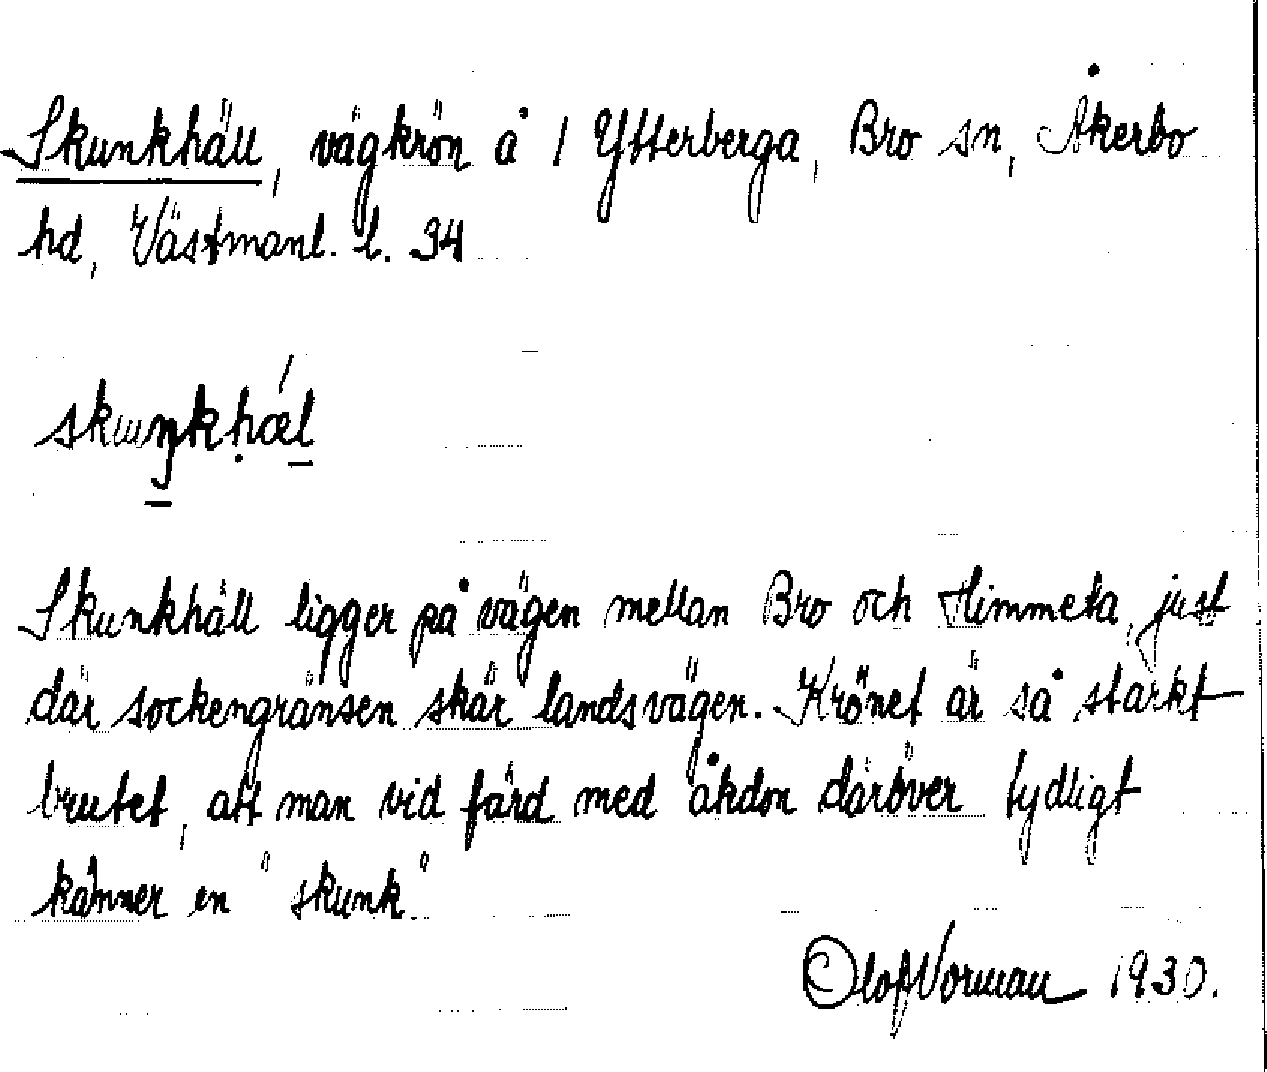 Skunkhäll, vägkrön å 1 Ytterberga, Bro sn, Åkerbo
hd, Västmanl. l. 34
skuŋkhæl
Skunkhäll ligger på vägen mellan Bro och Himmeta, just
där sockengränsen skär landsvägen. Krönet är så starkt
brutet, att man vid färd med åkdon däröver tydligt
känner en "skunk"
Olof Vorman 1930.